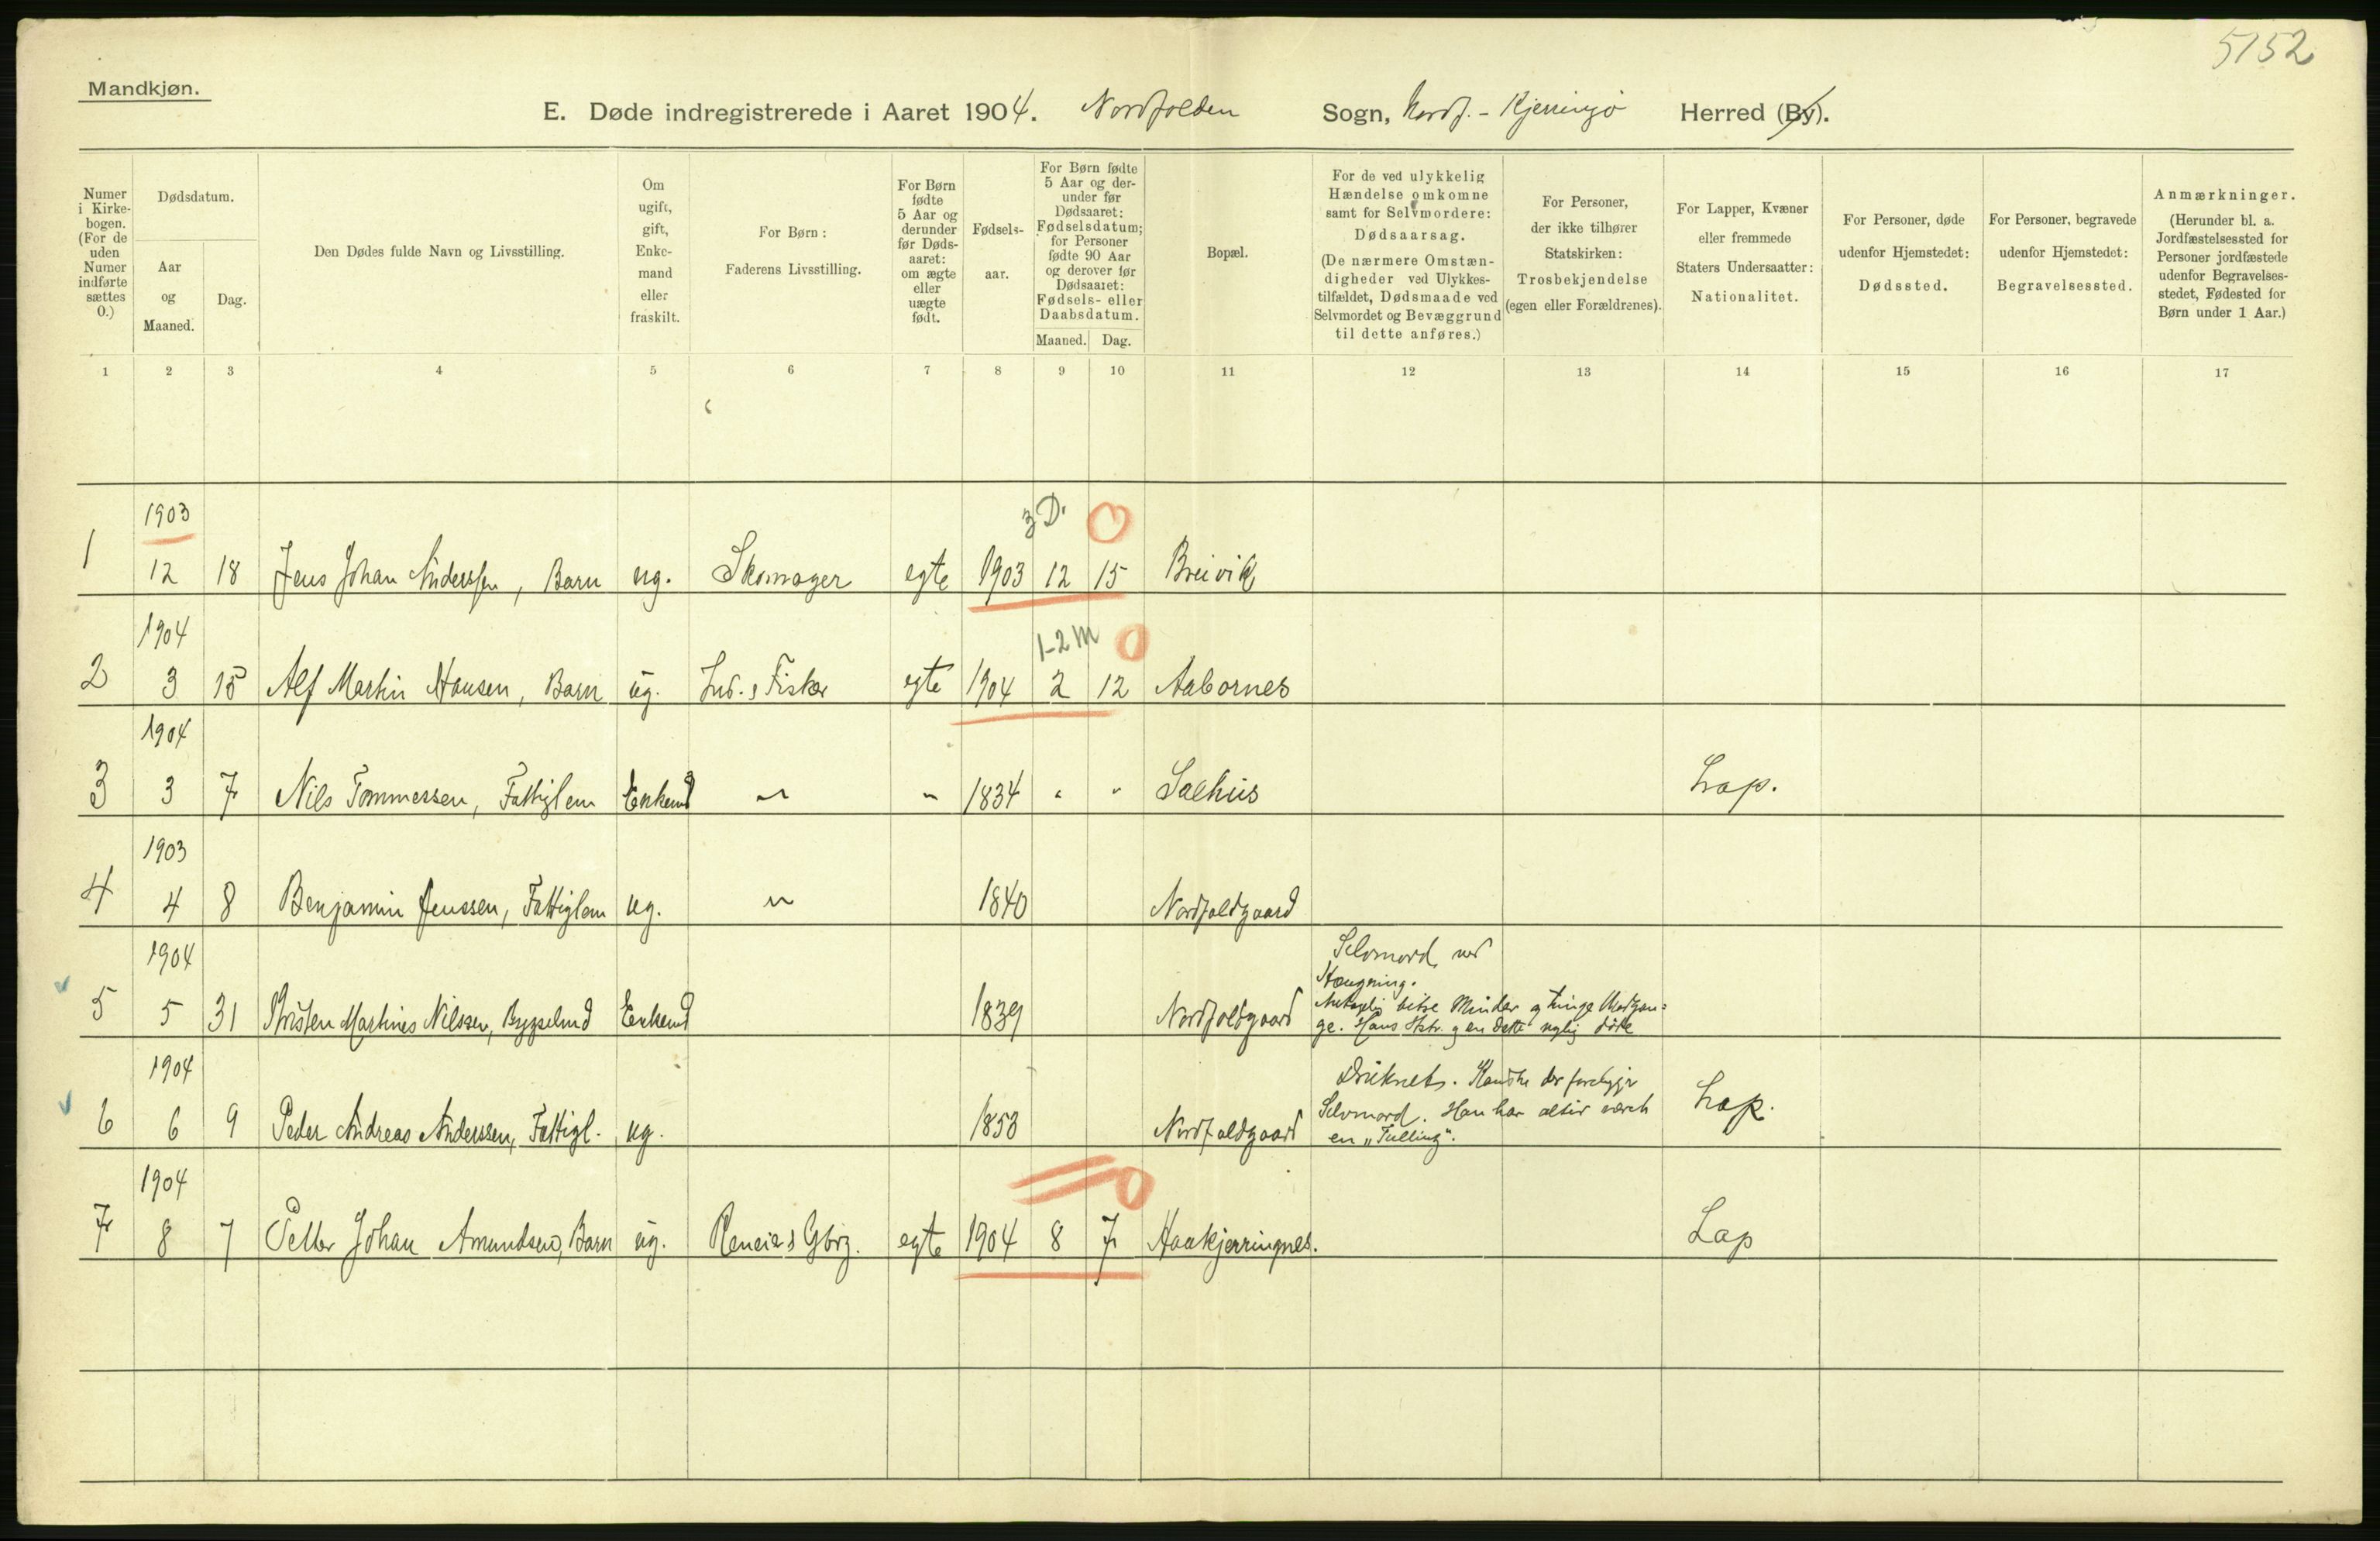 5152
Mandkjøn.
E. Døde indregistrerede i Aaret 1904. Nordfolden Sogn, Nordf. - Kjerringø Herred (By).
Numer i Kirkebogen. (For de uden Numer indførte sættes 0.)
Dødsdatum.
Aar og Maaned.
Dag.
Den Dødes fulde Navn og Livsstilling.
Om ugift, gift, Enkemand eller fraskilt.
For Børn: Faderens Livsstilling.
For Børn fødte 5 Aar og derunder før Dødsaaret: om ægte eller uægte født.
Fødselsaar.
For Børn fødte 5 Aar og derunder før Dødsaaret: Fødselsdatum; for Personer fødte 90 Aar og derover før Dødsaaret: Fødsels- eller Daabsdatum.
Maaned. Dag.
Bopæl.
For de ved ulykkelig Hændelse omkomne samt for Selvmordere: Dødsaarsag. (De nærmere Omstændigheder ved Ulykkestilfældet, Dødsmaade ved Selvmordet og Bevæggrund til dette anføres.)
For Personer, der ikke tilhører Statskirken: Trosbekjendelse (egen eller Forældrenes).
For Lapper, Kvæner eller fremmede Staters Undersaatter: Nationalitet.
For Personer, døde udenfor Hjemstedet: Dødssted.
For Personer, begravede udenfor Hjemstedet: Begravelsessted.
Anmærkninger. (Herunder bl. a. Jordfæstelsessted for Personer jordfæstede udenfor Begravelsesstedet, Fødested for Børn under 1 Aar.)
1 2 3 4 5 6 7 8 9 10 11 12 13 14 15 16 17
1903 3 D. 0
1 12 18 Jens Johan Anderssen, Barn ug. Skomager egte 1903 12 15 Breivik
1904 1-2 M 0
2 3 15 Alf Martin Hansen, Barn ug. Ind. s Fisker egte 1904 2 12 Aabornes
1904
3 3 7 Nils Tommessen, Fattiglem Enkemd " " 1834 " " Salhus Lap.
1903
4 4 8 Benjamin Jenssen, Fattiglem ug. " 1840 Nordfoldgaard
1904 Selvmord ved
Hængning.
5 5 31 Kristen Martines Nilssen, Bygselmd Enkemd 1839 Nordfoldgaard bitre Minder og tunge Modgan=
ge. Hans Hstr. g en Datter nylig døde
1904 Druknet. Kanske der foreligger
6 6 9 Peder Andreas Anderssen, Fattigl. ug. 1853 Nordfoldgaard Selvmord. Han har altid været Lap.
en „Tulling".
1904 0
7 8 7 Petter Johan Amundsen, Barn ug. Reneier s Gbrg. egte 1904 8 7 Haakjerringnes. Lap